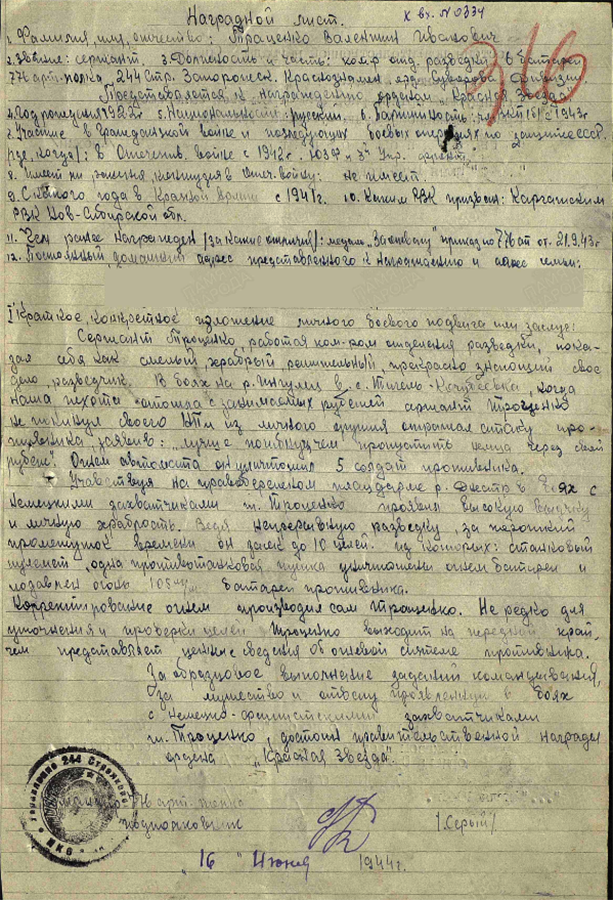 Наградной лист.
х вх. №0334
316
1. Фамилия, имя, отчество: Троценко Валентин Иванович
2. Звание: сержант. 3. Должность и часть: ком-р отд. разведки 6 батареи
776 арт. полка, 244 Стр. Запорожск. Краснознамен. орд. Суворова дивизии
Представляется к награждению орденом „Красная Звезда"
4. Год рождения 1922г. 5. Национальность: русский. 6. Партийность: ВКП(б) с 1943г
7. Участие в гражданской войне и последующих боевых операциях по защите СССР,
где, когда/: в Отечеств. войне с 1942г. ЮЗФ и 3й Укр. фронт.
8. Имеет ли ранения и контузия в отеч. войну: не имеет.
9. С какого года в Красной Армии с 1941г. 10. Каким РВК призван: Каргатским
РВК Нов-Сибирской обл.
11. Чем ранее награжден /за какие отличия/: медаль „За отвагу" приказ 776 ап от 21.9.43г
12. Постоянный домашний адрес представленного к награждению и адрес семьи:
I Краткое, конкретное изложение личного боевого подвига или заслуг:
Сержант Троценко, работая ком-ром отделения разведки, пока-
зал себя как смелый, храбрый, решительный, прекрасно знающий свое
дело, разведчик. В боях на р. Ингулец в с. когда
наша пехота отошла с занимаемых рубежей сержант Троценко
не покинул своего НП и из личного оружия отражал атаку про-
тивника заявив: „лучше погибну, чем пропустить немца через свой
рубеж". Огнем автомата он уничтожил 5 солдат противника.
Участвуя на правобережном плацдарме р. Днестр в боях с
немецкими захватчиками т. Троценко проявил высокую выучку
и личную храбрость. Ведя непрерывную разведку, за короткий
промежуток времени он засек до 10 целей. из которых: станковый
пулемет, одна противотанковая пушка уничтожены огнем батареи и
подавлен огонь 105мм батареи противника.
Корректирование огнем производил сам Троценко. Не редко для
уточнения и проверки целей Троценко выходит на передний край,
чем представляет ценные сведения об огневой системе противника.
За образцовое выполнение заданий командования,
за мужество и отвагу проявленные в боях
с немецко-фашистскими захватчиками
т. Троценко, достоин правительственной награды
ордена „Красная Звезда".
776 арт. полка
подполковник /Серый/
„16" Июня 1944г.
Управление 244 Стрелковой
НКО